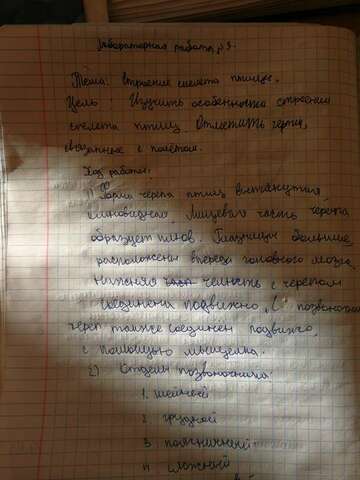 Лабораторная работа №3.
Тема: Строение скелета птицы.
Цель: Изучить особенности строения
скелета птиц. Отметить черты,
связанные с полётом.
Ход работы:
1) Форма черепа птиц вытянутая
клиновидная. Лицевая часть черепа
образует клюв. Глазницы большие
расположены впереди головного мозга
нижняя челюсть с черепом
соединена подвижно. С позвоночн
череп также соединен подвижно
с помощью мыщелка.
2) Отделы позвоночника:
1. шейный
2. грудной
3. поясничный
4. сложный